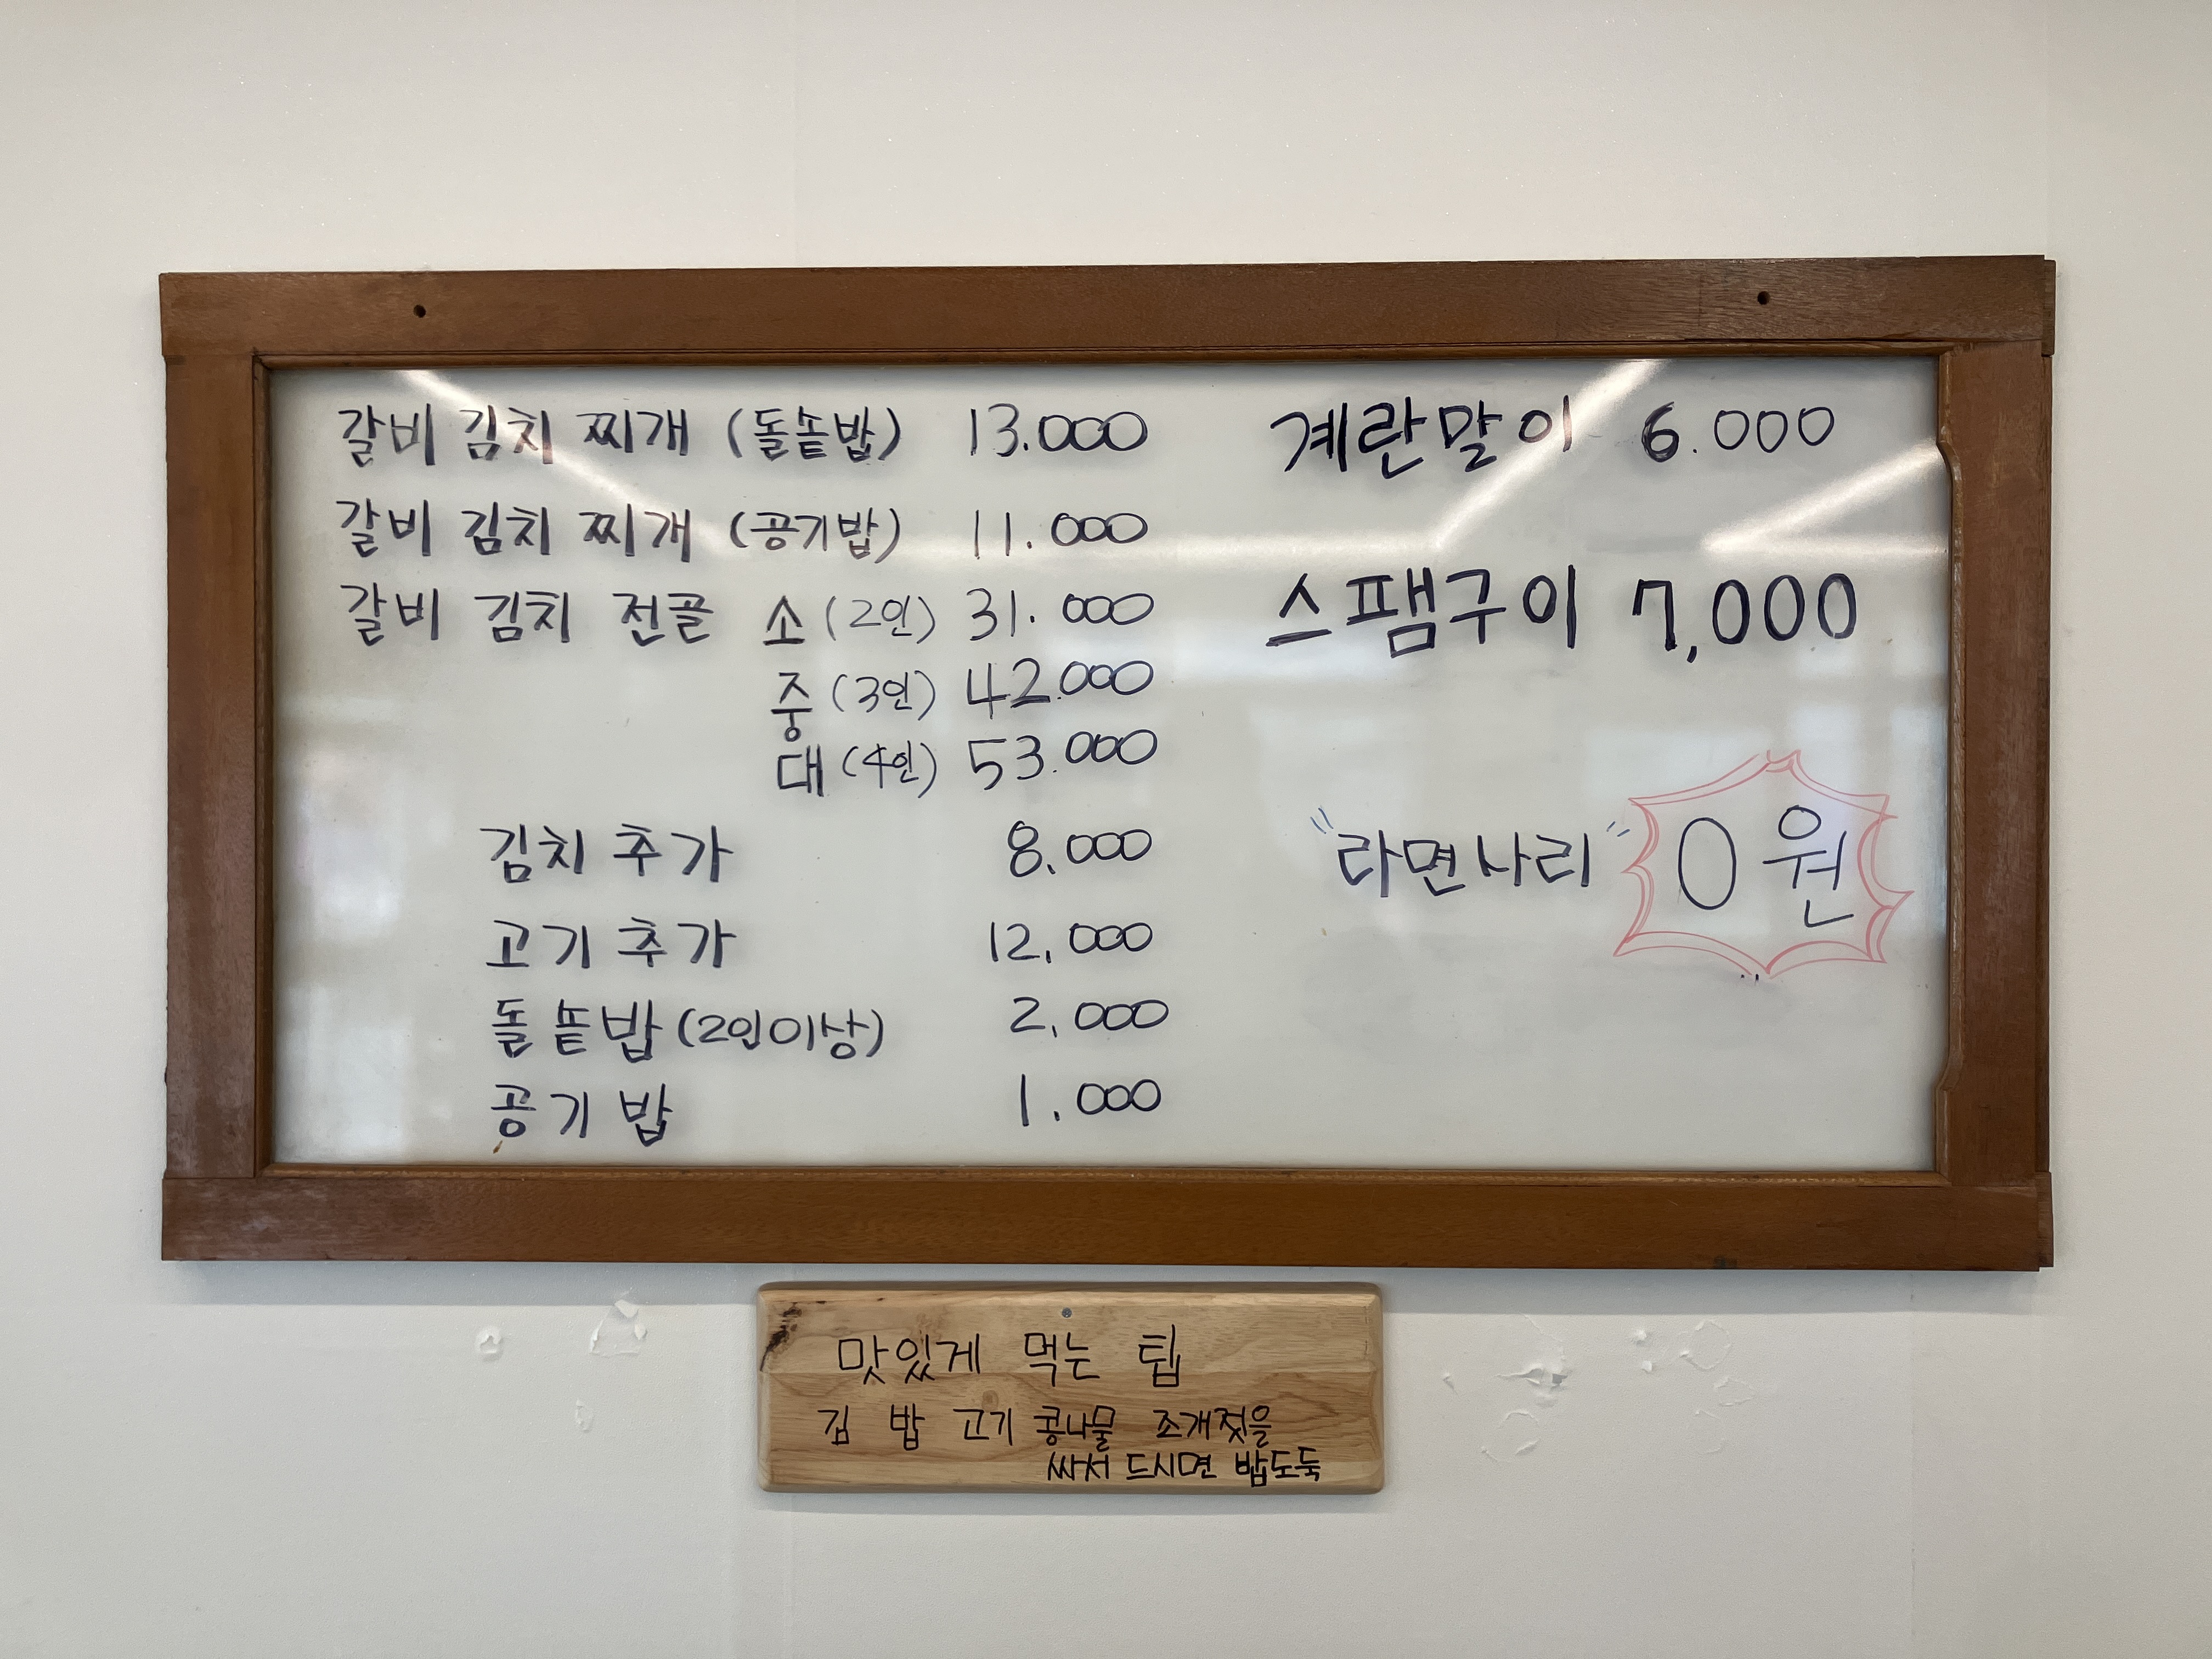 갈비 김치 찌개 (돌솥밥) 13.000
갈비 김치 찌개 (공기밥) 11.000
갈비 김치 전골 소 (2인) 31.000
중 (3인) 42.000
대 (4인) 53.000
김치 추가 8.000
고기 추가 12,000
돌솥밥 (2인이상) 2,000
공기밥 1.000
계란말이 6.000
스팸구이 7,000
"라면사리" 0원
맛있게 먹는 팁
김 밥 고기 콩나물 조개젓을
싸서 드시면 밥도둑